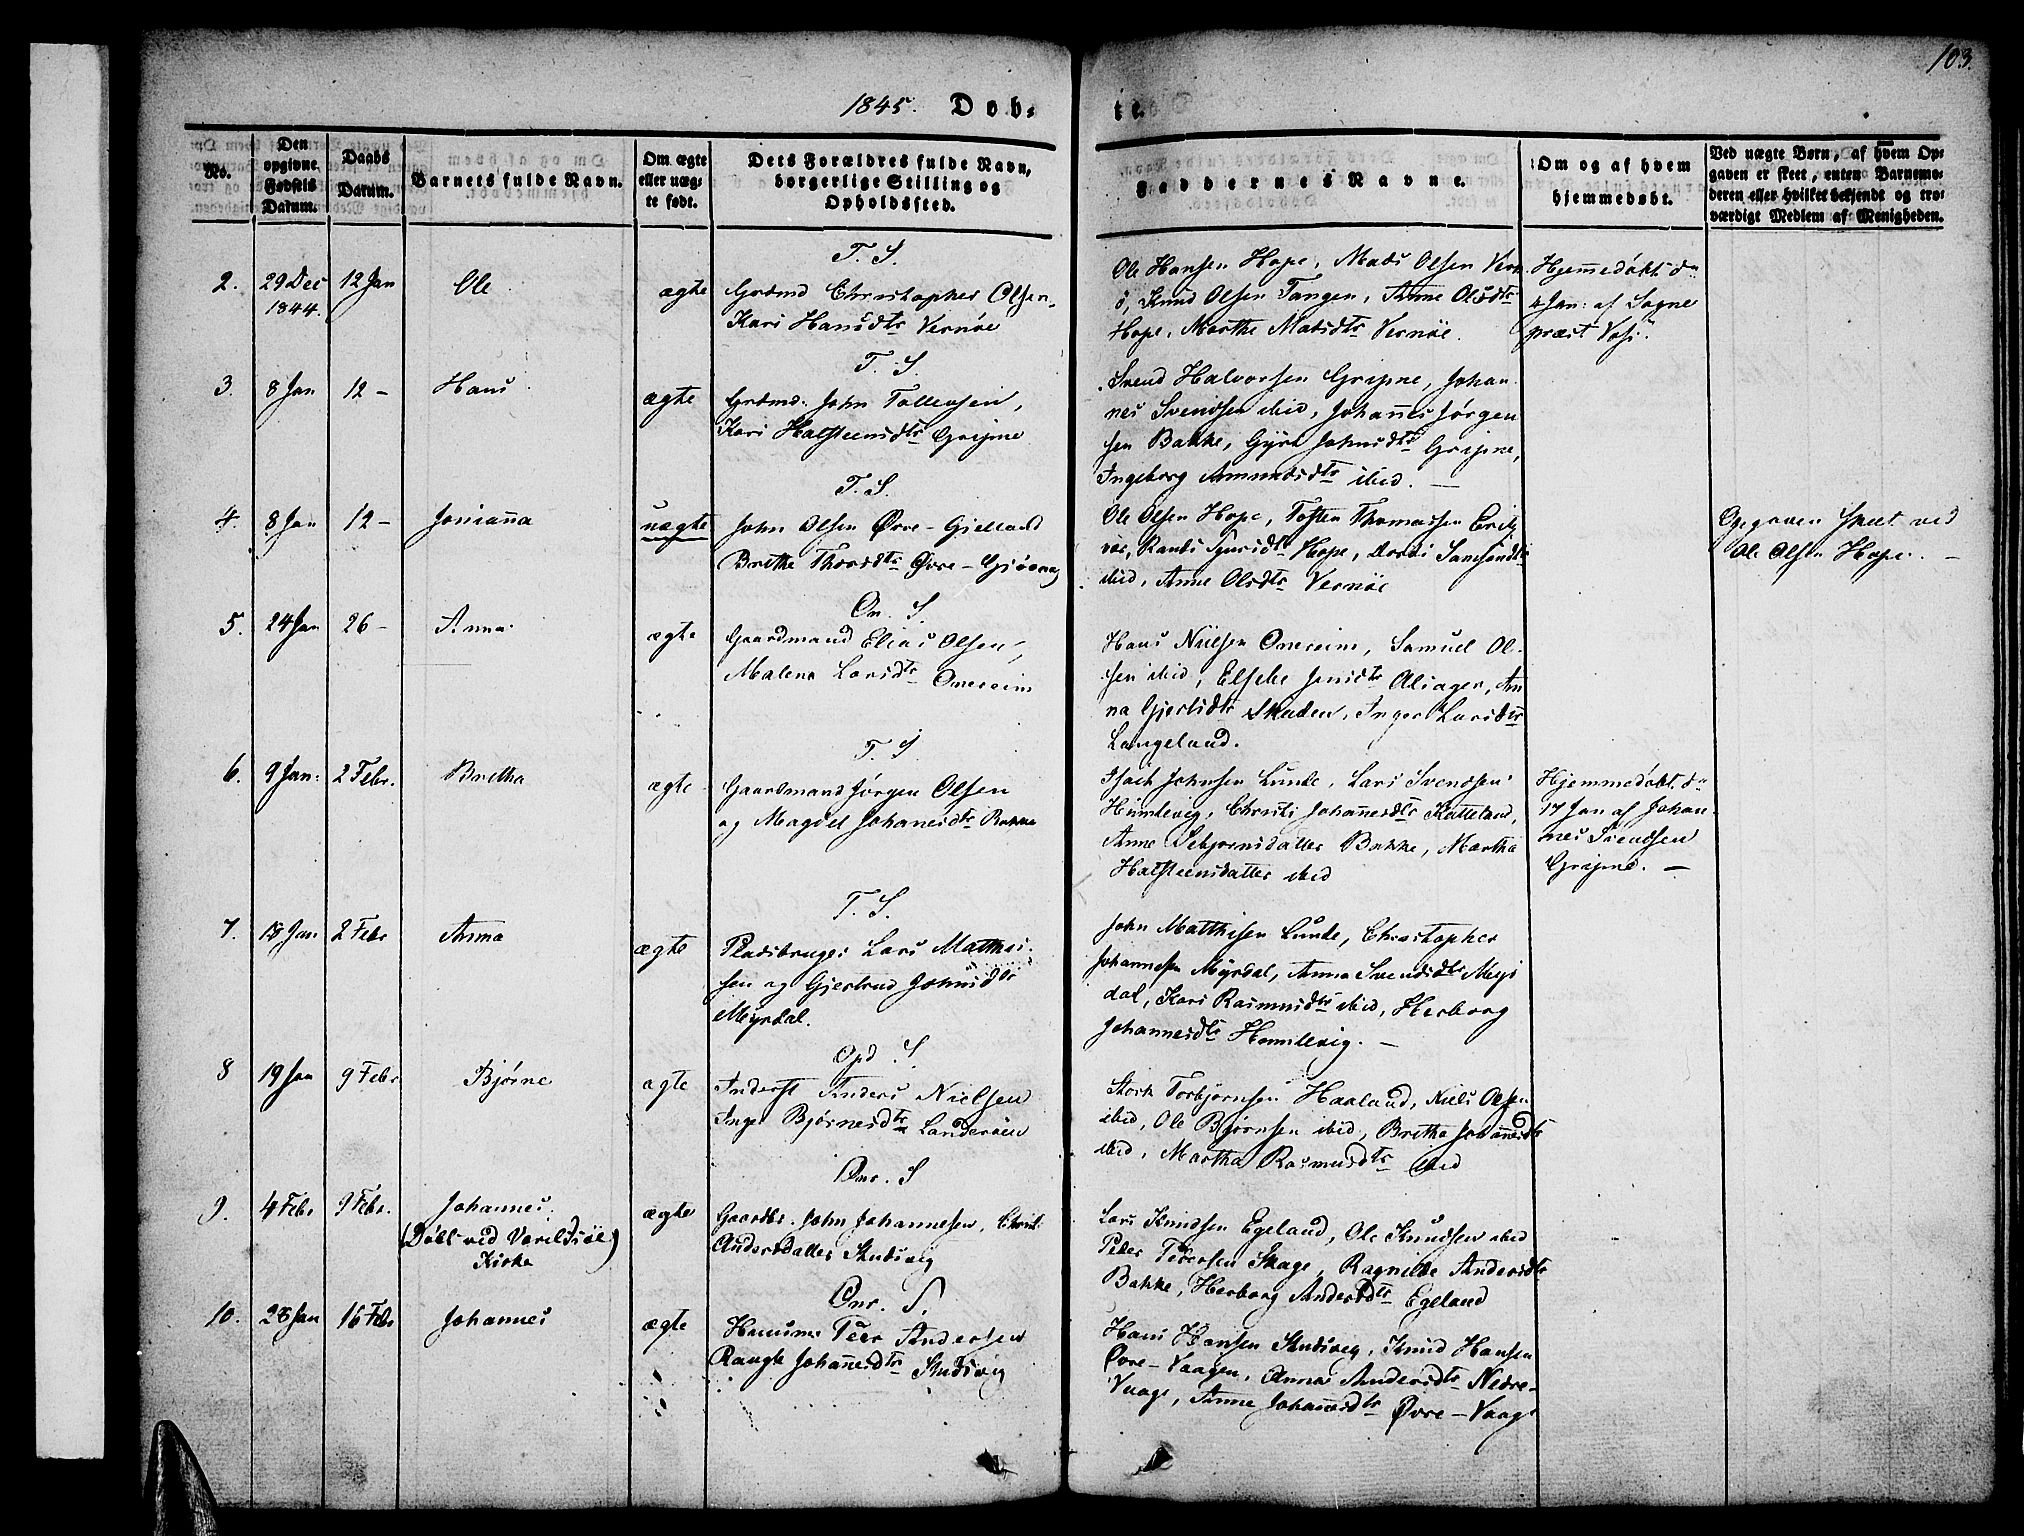 103.
1845. Døb- te.
No.
Den opgivne Fødsels Datum.
Daabs Datum.
Barnets fulde Navn.
Om ægte eller uægte født.
Dets Forældres fulde Navn, borgerlige Stilling og Opholdssted.
Faddernes Navne.
Om og af hvem hjemmedøbt.
Ved uægte Børn, af hvem Opgaven er skeet, enten Barnemoderen eller hvilket bekjendt og troværdigt Medlem af Menigheden.
2. 29 Dec 1844. 12 Jan Ole ægte
T. S.
Grdmd Christopher Olsen,
Kari Hansdtr Vernøe
Ole Hansen Hope, Mads Olsen Vern
ø, Knud Olsen Tangen, Anne Olsdtr
Hope, Marthe Matsdtr Vernøe.
Hjemmedøbt d.
4 Jan: af Sogne
præst Voss.
3. 8 Jan 12 – Hans ægte
T. S.
Grdmd: John Tollevsen,
Kari Halsteensdtr Gripne
Svend Halvorsen Gripne, Johan
nes Svendsen ibid, Johannes Jørgen
sen Bakke, Gyri Johnsdtr Gripne,
Ingeborg Amundsdtr ibid. –
4. 8 Jan 12 – Johanna uægte
T. S.
John Olsen Øvre-Gjelland
Brithe Thorsdtr Øvre-
Ole Olsen Hope, Tosten Thomassen
Hope, Samsonsdtr
ibid, Anne Olsdtr Vernøe
Opgaven skeet ved
Ole Olsen Hope. –
5. 24 Jan 26 – Anna ægte
On. S.
Gaardmand Elias Olsen,
Malena Larsdtr Onereim
Hans Nielsen Onereim, Samuel Ol-
sen ibid, Elsebe Jensdtr Alsager, An
na Gjertsdtr Skaden, Inger Larsdtr
Langeland.
6. 9 Jan: 2 Febr. Britha ægte
T. S.
Gaardmand Jørgen Olsen
og Magdel Johannesdtr Bakke
Isach Johnsen Lunde, Lars Svendsen
Humlevig, Christi Johannesdtr Katteland,
Anne Sebjørnsdatter Bakke, Martha
Halsteensdatter ibid
Hjemmedøbt d.
17 Jan af Johan-
nes Svendsen
Gripne. –
7. 18 Jan 2 Febr Anna ægte
T. S.
Pladsbruger Lars Mathis-
sen og Gjertrud Johnsdtr
Myrdal.
John Matthisen Lunde, Christopher
Johannesen Myrdal, Anna Svendsdtr Myr
dal, Kari Rasmusdtr ibid, Herborg
Johannesdtr Humlevig. –
8 19 Jan 9 Febr Bjørne ægte
Opd S.
Inderst Anders Nielsen
Inger Bjørnesdtr Landerøen
Stork Torbjørnsen Haaland, Niels Olsen
ibid, Ole Bjørnsen ibid, Britha Johannesdtr
ibid, Martha Rasmusdtr ibid
9. 4 Febr 9 Febr. Johannes.
(Døbt ved Varildsøe
Kirke)
ægte
Onr. S
Gaardbr. John Johannesen, Christi
Andersdatter Skutsvig
Lars Knudsen Egeland, Ole Knudsen ibid
Peder Pedersen Skage, Ragnilde Andersdtr
Bakke, Herborg Andersdtr Egeland
10. 28 Jan 16 Febr Johannes ægte
Onr. S.
Huusm Peer Andersen
Johannesdtr Skutsvig
Hans Hansen Skutsvig, Knud Hansen
Øvre-Vaagen, Anna Andersdtr Nedre-
Vaage, Anne Johannesdtr Øvre-Vaage